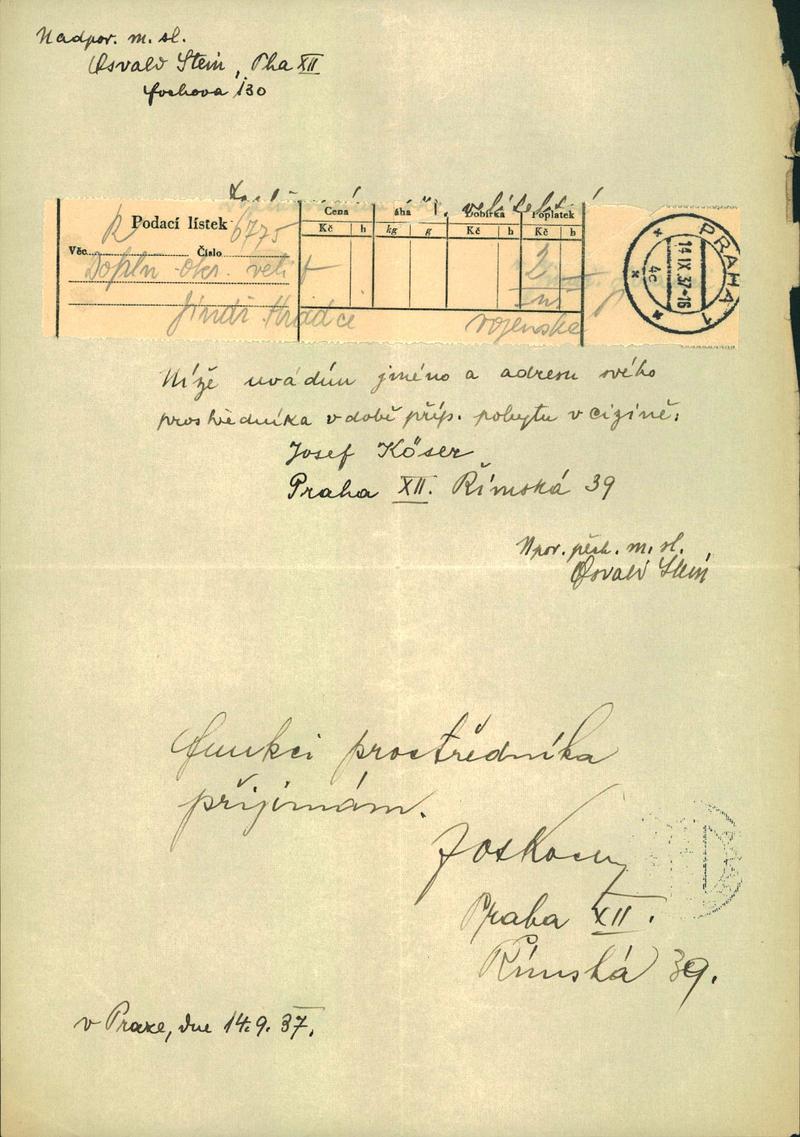 Nadpor. m. sl.
Osvald Stein, Pha XII
Fochova 130
velitelství
Podací lístek
R 6775
Věc Číslo
Doplň. okr. velit
Jindř. Hradce
Cena váha Dobírka Poplatek
Kč h kg g Kč h Kč h
2
vojenské
PRAHA 1
14 IX 37-16
4c
Níže uvádím jméno a adresu svého
prostředníka v době příp. pobytu v cizině:
Josef Köser
Praha XII. Římská 39
Npor. pěch. m. sl.
Osvald Stein
funkci prostředníka
přijímám.
Praha XII.
Římská 39.
v Praze, dne 14.9.37.